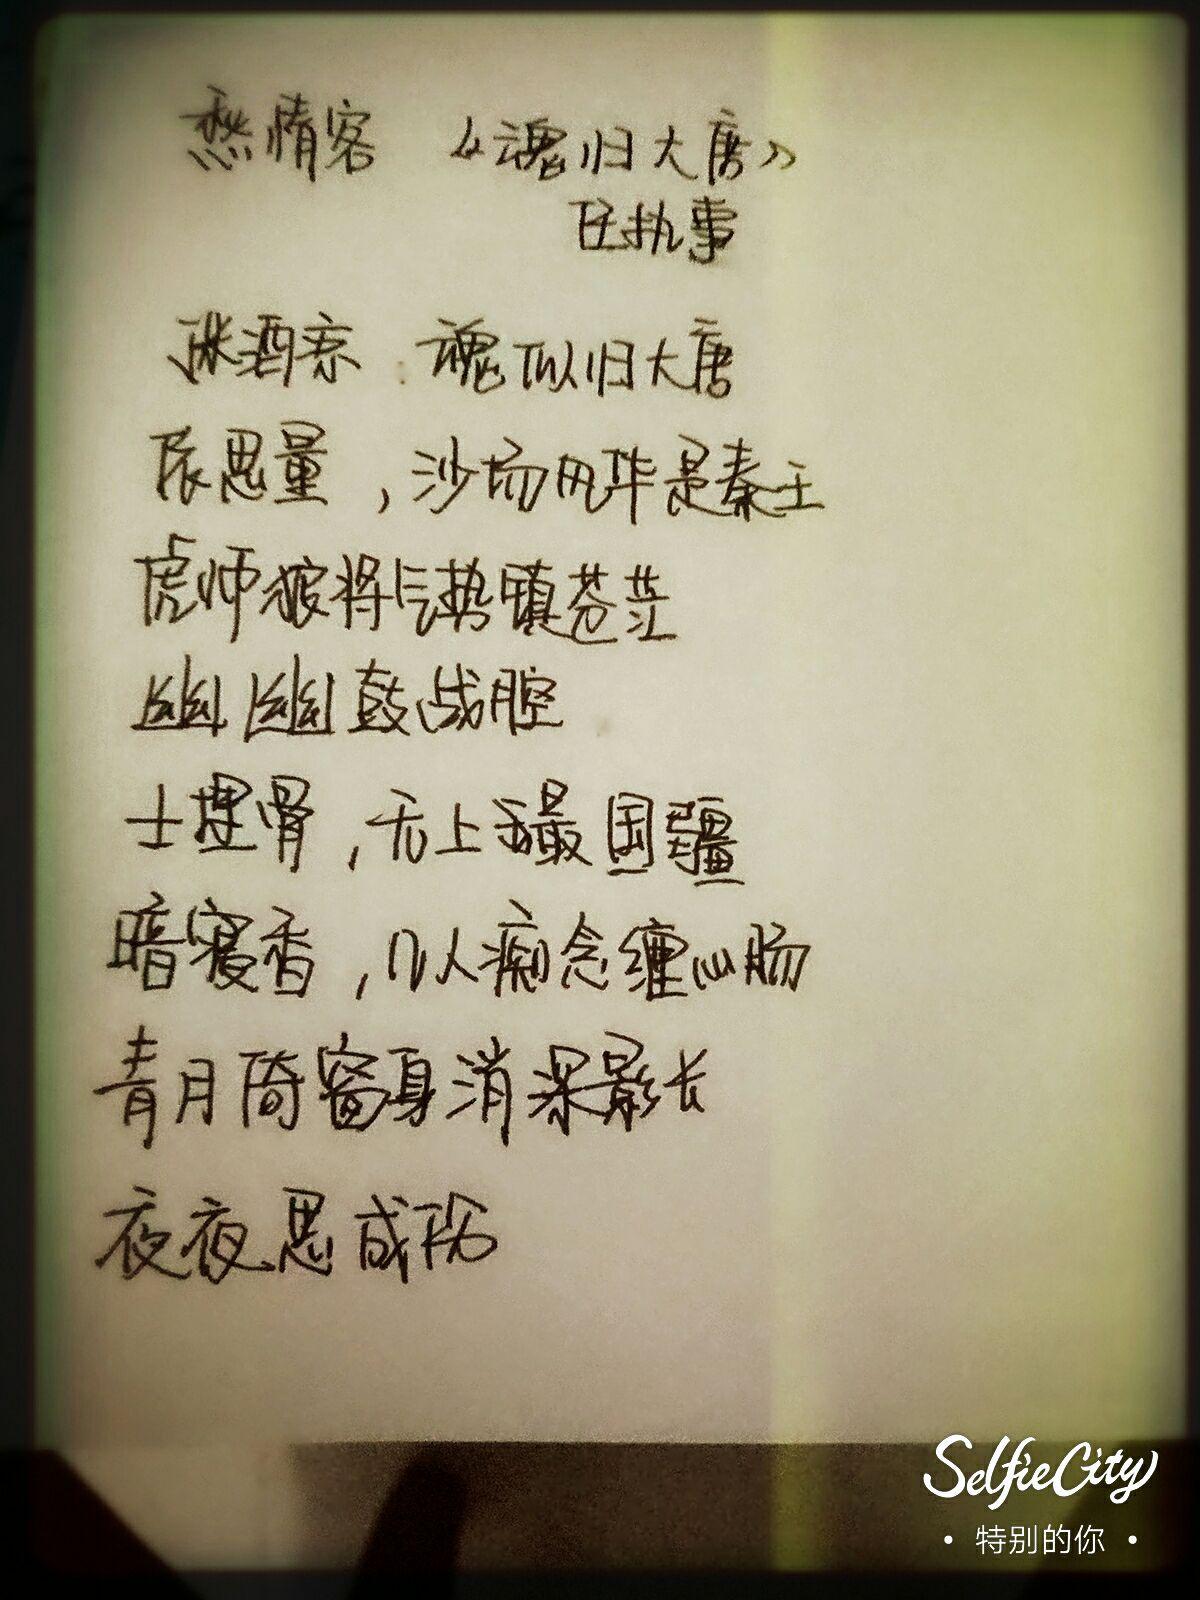 愁情客 《魂归大唐》
任执事
酒凉 魂似归大唐
长思量,沙场风华是秦王
虎师狼将气势镇苍茫
幽幽鼓战腔
士埋骨,无上最国疆
暗寝香,几人痴念缠心肠
青月倚窗身消深影长
夜夜思成殇
SelfieCity
• 特别的你 •